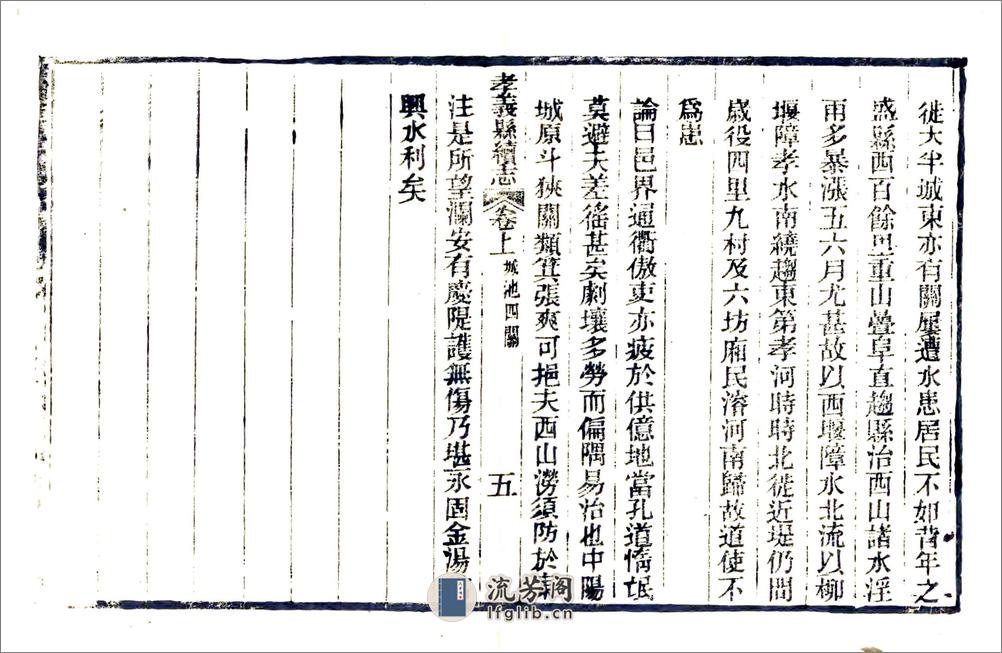 徙大半城東亦有關屢遭水患居民不如昔年之
盛縣西百餘里重山疊阜直趨縣治西山諸水淫
雨多暴漲五六月尤甚故以西堰障水北流以柳
堰障孝水南繞趨東第孝河時時北徙近堤仍間
歲役四里九村及六坊廂民濬河南歸故道使不
為患
論曰邑界通衢傲吏亦疲於供億地當孔道惰氓
莫避夫差徭甚矣劇壤多勞而偏隅易治也中陽
城原斗狹關類箕張爽可挹夫西山澇須防於
孝義縣續志 卷上 城池四關 五
注是所望瀾安有慶隄護無傷乃堪永固金湯
興水利矣
流芳阁
lfglib.cn